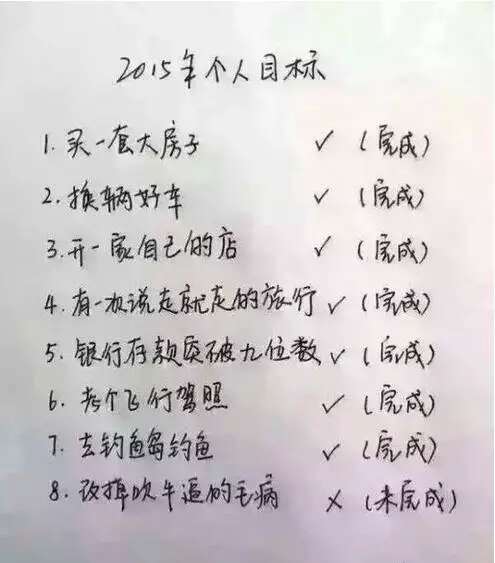 2015年个人目标
1. 买一套大房子 ✓ (完成)
2. 换辆好车 ✓ (完成)
3. 开一家自己的店 ✓ (完成)
4. 有一次说走就走的旅行 ✓ (完成)
5. 银行存款突破九位数 ✓ (完成)
6. 考个飞行驾照 ✓ (完成)
7. 去钓鱼岛钓鱼 ✓ (完成)
8. 改掉吹牛逼的毛病 × (未完成)